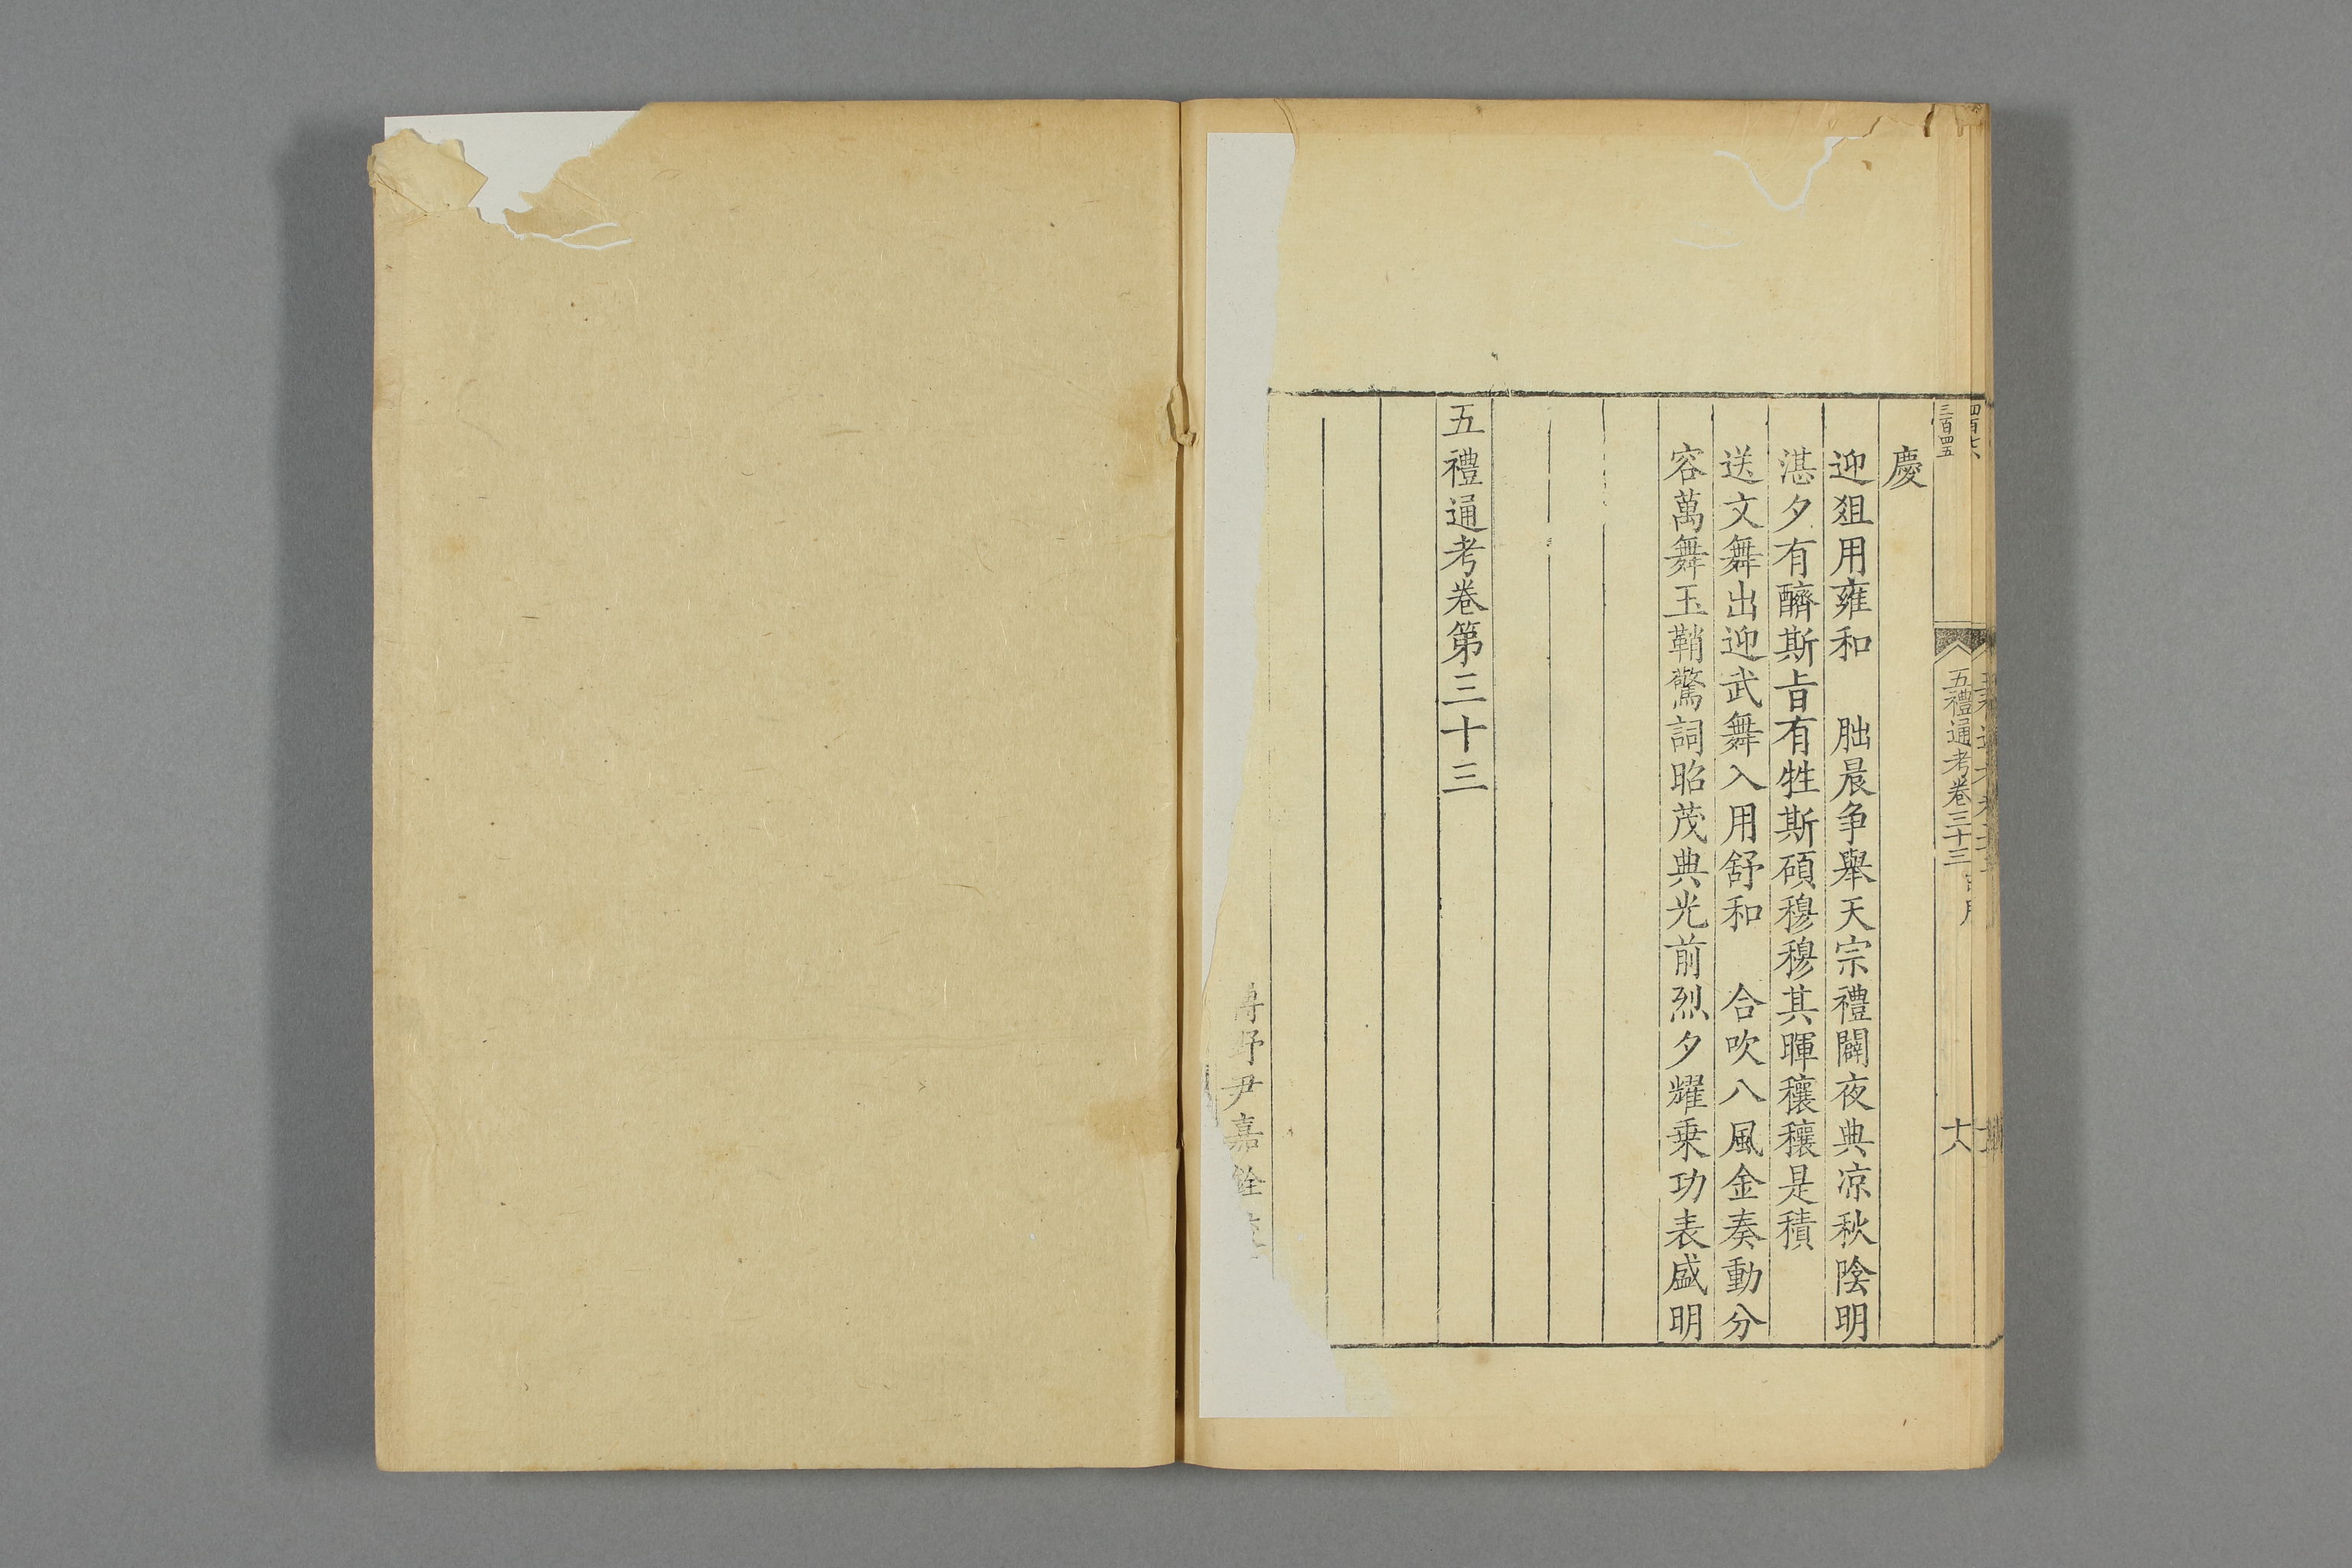 三百四五
五禮通考卷三十三
十六
慶
迎爼用雍和　朏晨争舉天宗禮闢夜典凉秋陰明
湛夕有醹斯旨有牲斯碩穆穆其暉穰穰是積
送文舞出迎武舞入用舒和　合吹八風金奏動分
容萬舞玉鞘驚詞昭茂典光前烈夕耀乗功表盛明
五禮通考卷第三十三
博野尹嘉銓